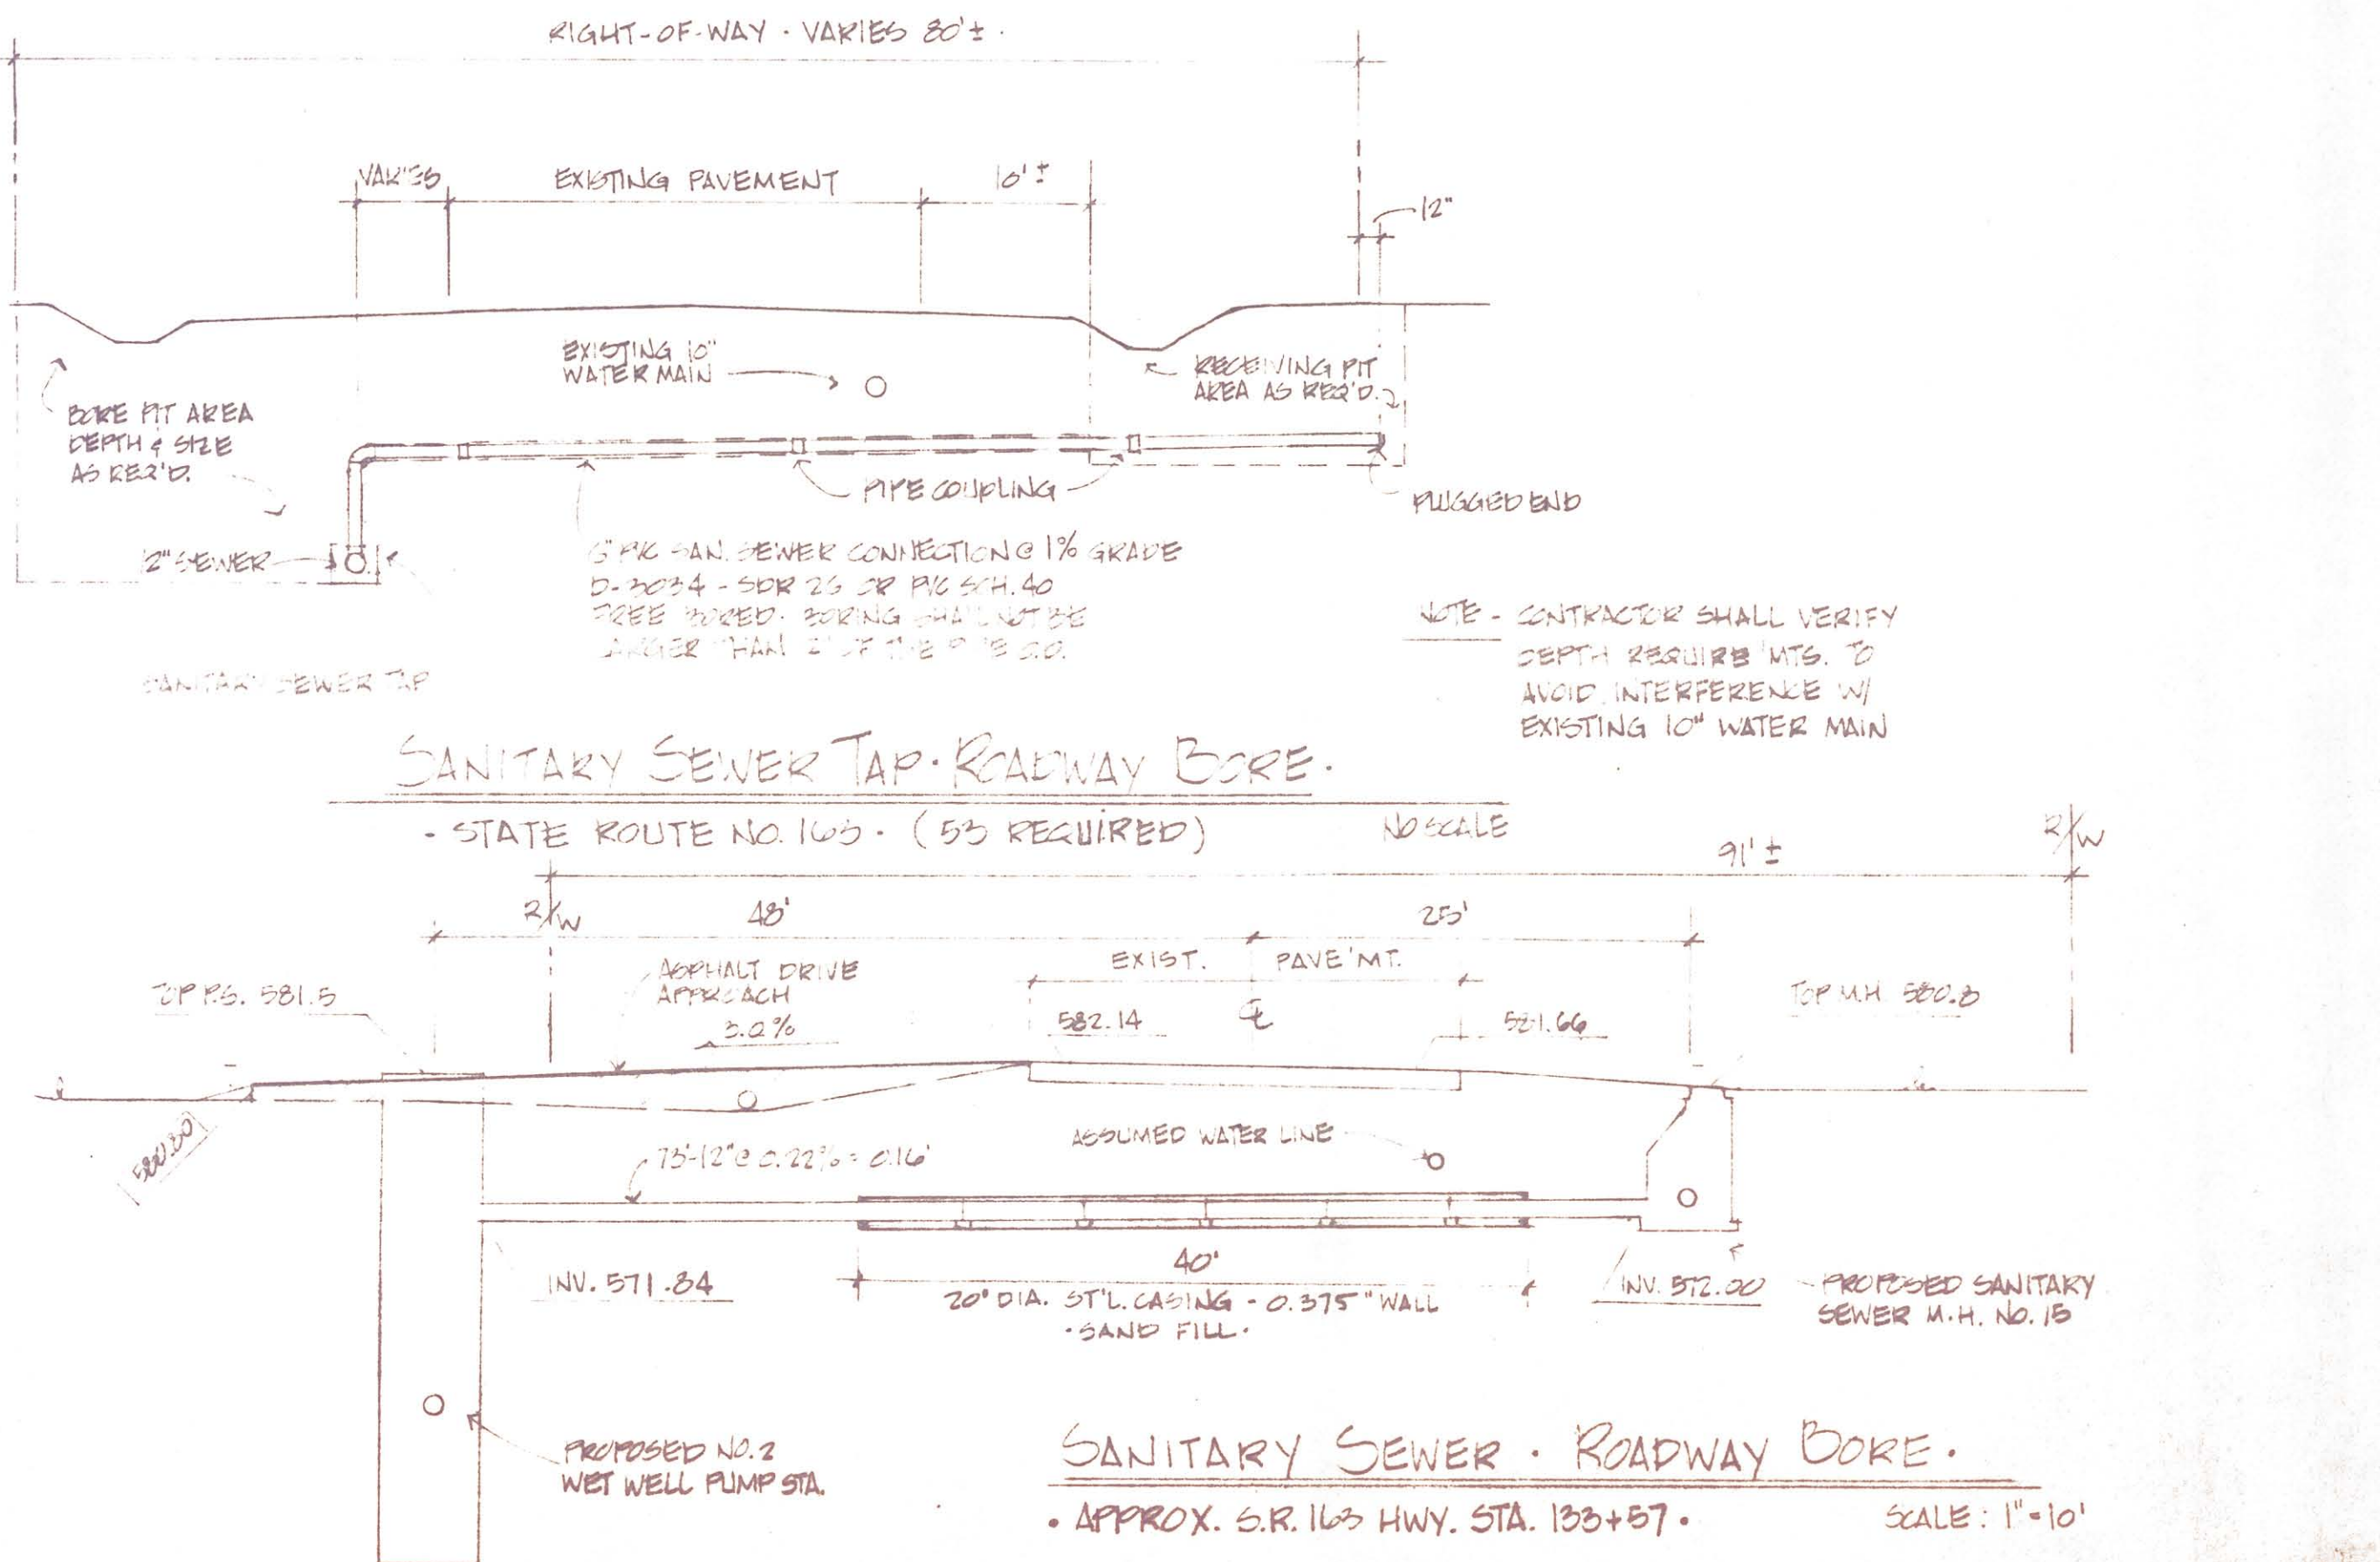 RIGHT-OF-WAY · VARIES 80'± ·
VARIES
EXISTING PAVEMENT
10' ±
12"
EXISTING 10"
WATER MAIN
RECEIVING PIT
AREA AS REQ'D.
BORE PIT AREA
DEPTH & SIZE
AS REQ'D.
PIPE COUPLING
PLUGGED END
12" SEWER
6" PVC SAN. SEWER CONNECTION @ 1% GRADE
D-3034 - SDR 26 OR PVC SCH. 40
FREE BORED. BORING SHALL NOT BE
LARGER THAN 2" OF THE PIPE O.D.
NOTE - CONTRACTOR SHALL VERIFY
DEPTH REQUIRE'MTS. TO
AVOID INTERFERENCE W/
EXISTING 10" WATER MAIN
SANITARY SEWER TAP
SANITARY SEWER TAP · ROADWAY BORE ·
· STATE ROUTE NO. 163 · (53 REQUIRED)
NO SCALE
91' ±
R/W
R/W
48'
25'
EXIST. PAVE'MT.
ASPHALT DRIVE
APPROACH
3.0%
TOP P.S. 581.5
582.14
℄
581.66
TOP M.H. 580.8
580.80
73'-12" @ 0.22% = 0.16'
ASSUMED WATER LINE
INV. 571.84
40'
20" DIA. ST'L. CASING - 0.375" WALL
· SAND FILL ·
INV. 572.00
PROPOSED SANITARY
SEWER M.H. NO. 15
PROPOSED NO. 2
WET WELL PUMP STA.
SANITARY SEWER · ROADWAY BORE ·
· APPROX. S.R. 163 HWY. STA. 133+57 ·
SCALE: 1"=10'